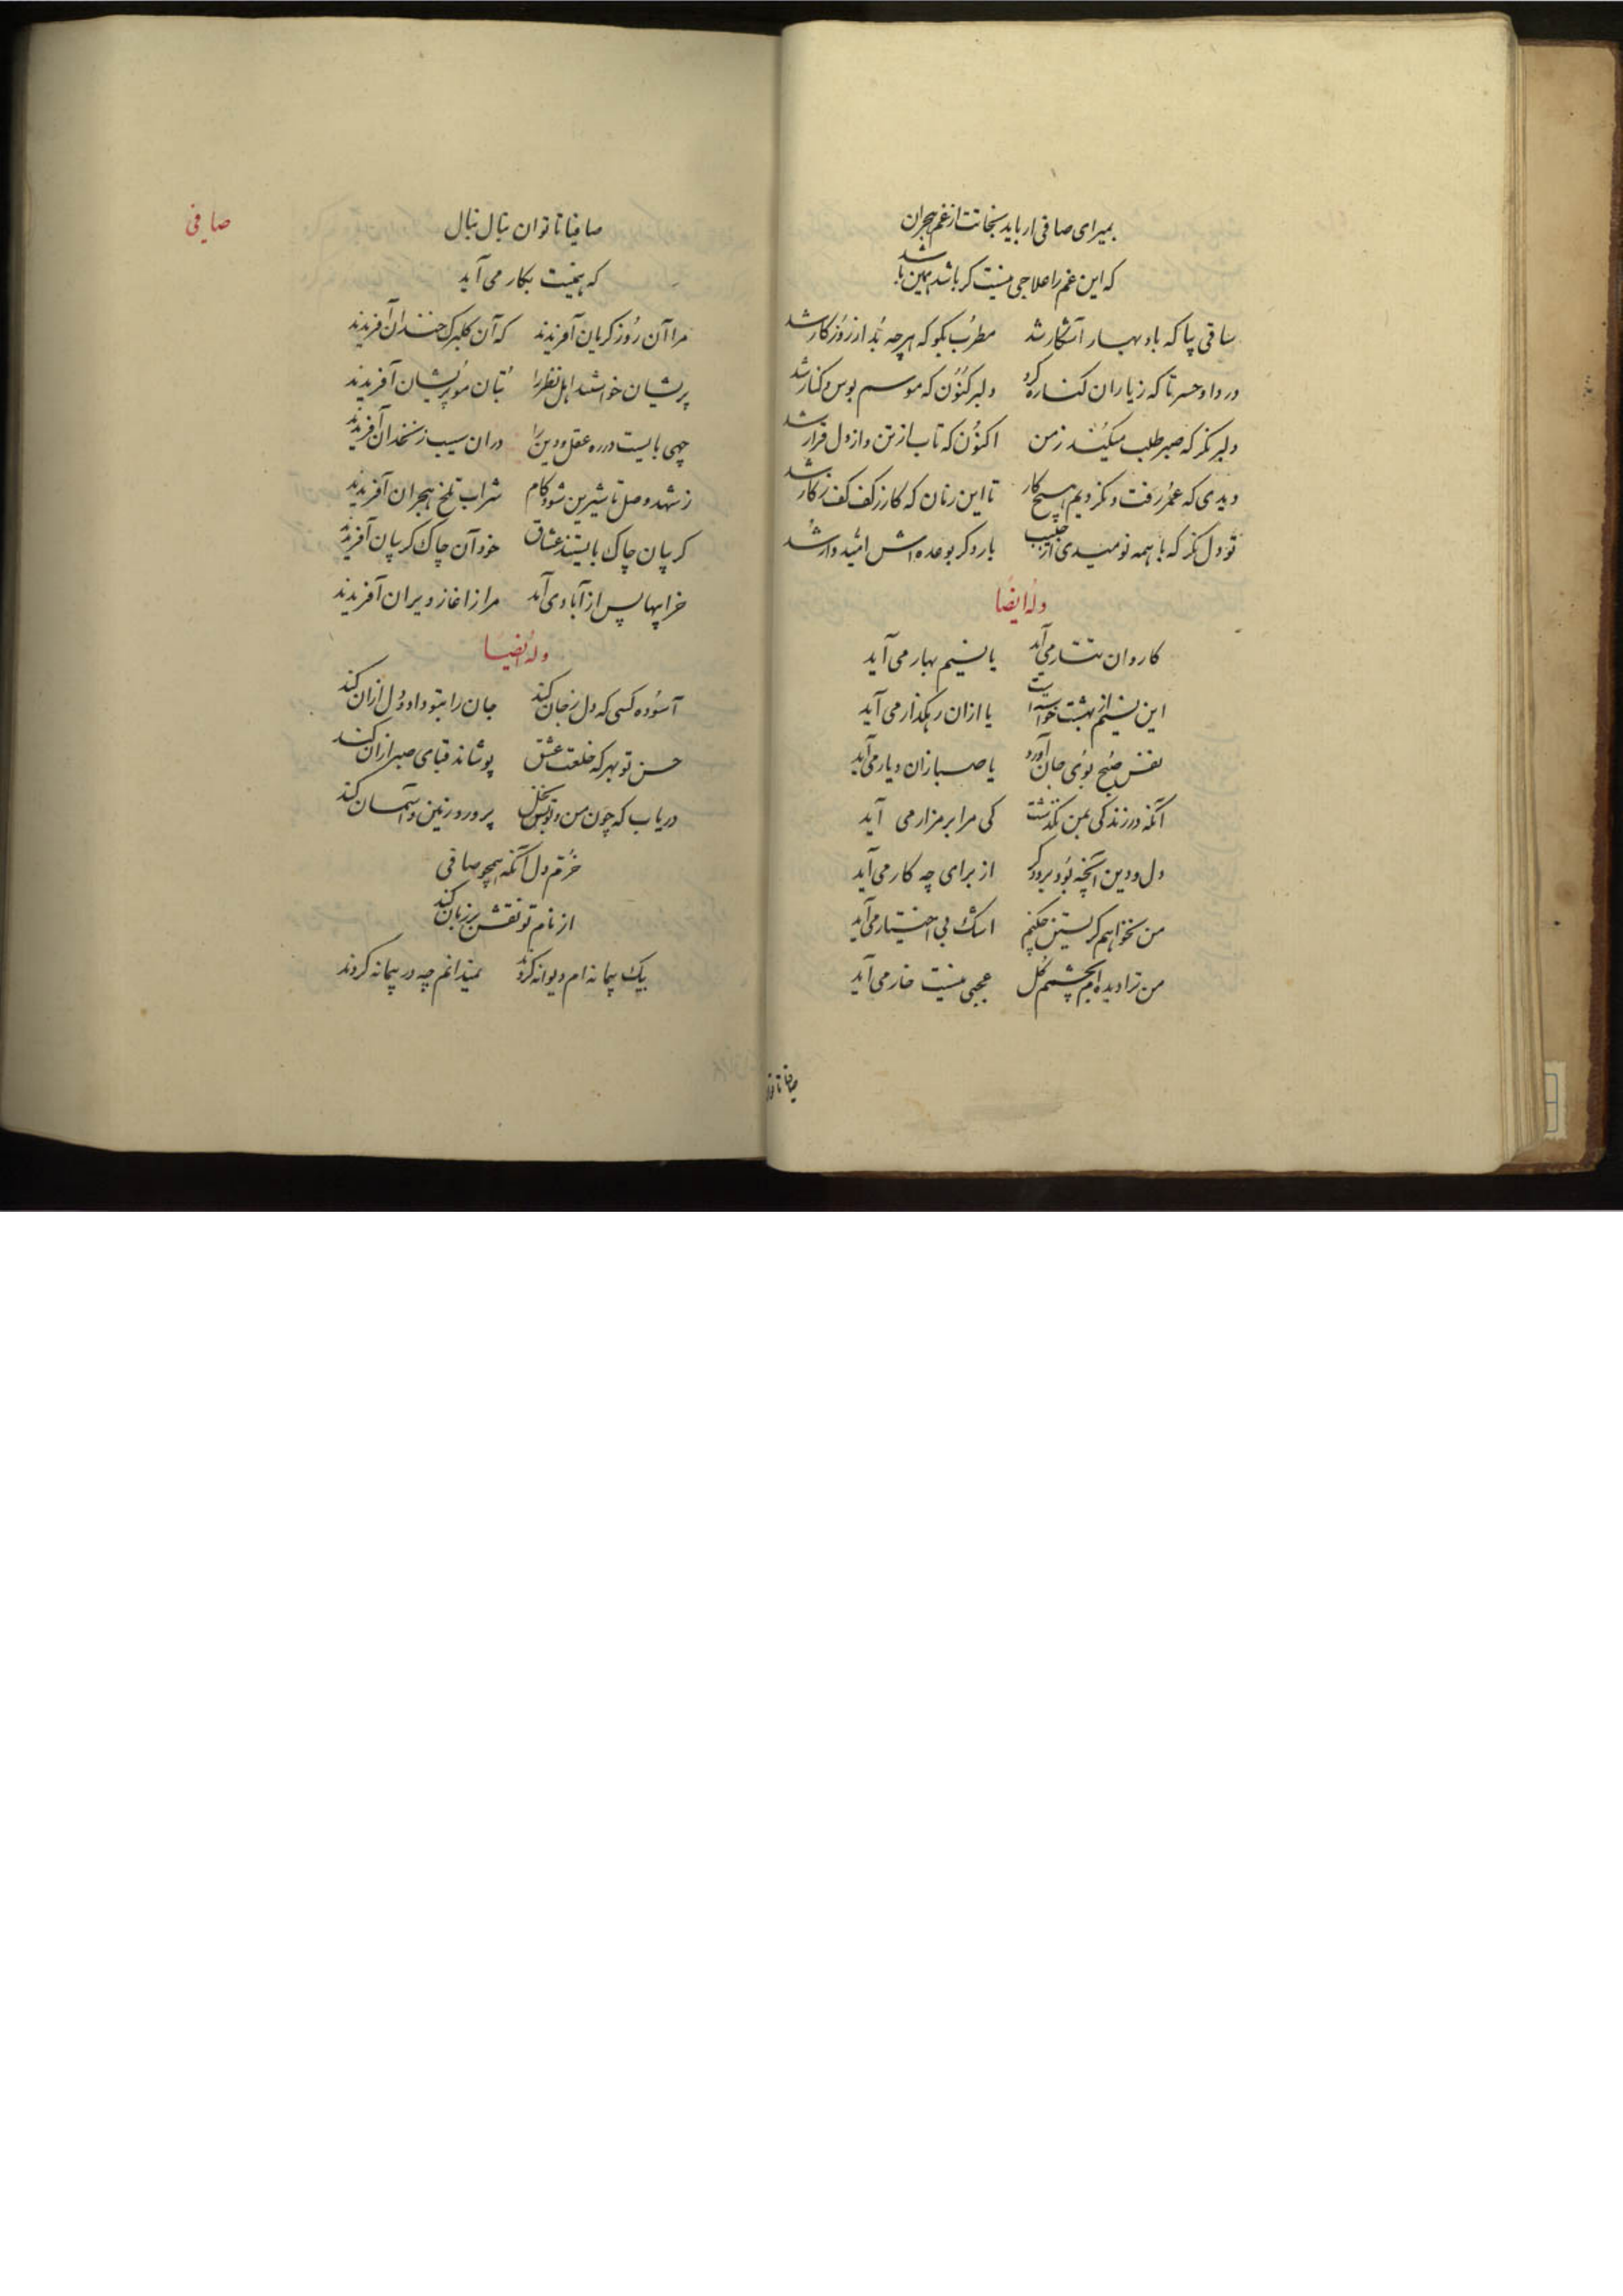 بمیرای صافی ار باید نجاتت از غم هجران
که این غم را علاجی نیست کر باشد همین باشد
ساقی بیا که باد بهار آشکار شد مطرب بکو که هرچه بُد از روزکار شد
دردا و حسرتا که زیاران کناره کرد دلبر کنون که موسم بوس و کنار شد
دلبر نکر که صبر طلب میکند زمن اکنون که تاب از تن و از دل قرار شد
دیدی که عمر رفت و نکردیم هیچ کار تا این زمان که کار زکف کف زکار شد
تو دل نکر که با همه نومیدی از حبیب بار دکر بوعده اش امیدوار شد
وله ایضا
کاروان تتار می آید یا نسیم بهار می آید
این نسیم از بهشت خواسته است یا ازان رهکذار می آید
نفس صبح بوی جان آورد یا صبا زان دیار می آید
آنکه در زندکی بمن نکذشت کی مرا بر مزار می آید
دل و دین آنچه بود برد دکر از برای چه کار می آید
من نخواهم کریستن چکنم اشک بی اختیار می آید
من ترا دیده ام بچشمم کل عجبی نیست خار می آید
صافیا ناتوان
صافی
صافیا ناتوان بنال بنال
که همینت بکار می آید
مرا آن روز کریان آفریدند که آن کلبرک خندان آفریدند
پریشان خواستند اهل نظر را بتان مو پریشان آفریدند
چهی بایست در ره عقل و دین را دران سیب زنخدان آفریدند
ز شهد وصل تا شیرین شود کام شراب تلخ هجران آفریدند
کریبان چاک بایستند عشاق خود آن چاک کریبان آفریدند
خرابیها پس از آبادی آید مرا ز اغاز ویران آفریدند
وله ایضا
آسوده کسی که دل زجان کند جان را بتو داد و دل ازان کند
حسن تو بهر که خلعت عشق پوشاند قبای صبر ازان کند
دریاب که چون من و تو بس نخل پرورد زمین و آسمان کند
خرم دل آنکه همچو صافی
از نام تو نقش بر زبان کند
بیک پیمانه ام دیوانه کردند نمیدانم چه در پیمانه کردند